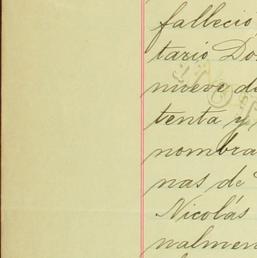 falleció
tario Do
nueve d
tenta y
nombra
nas de
Nicolás
nalmen